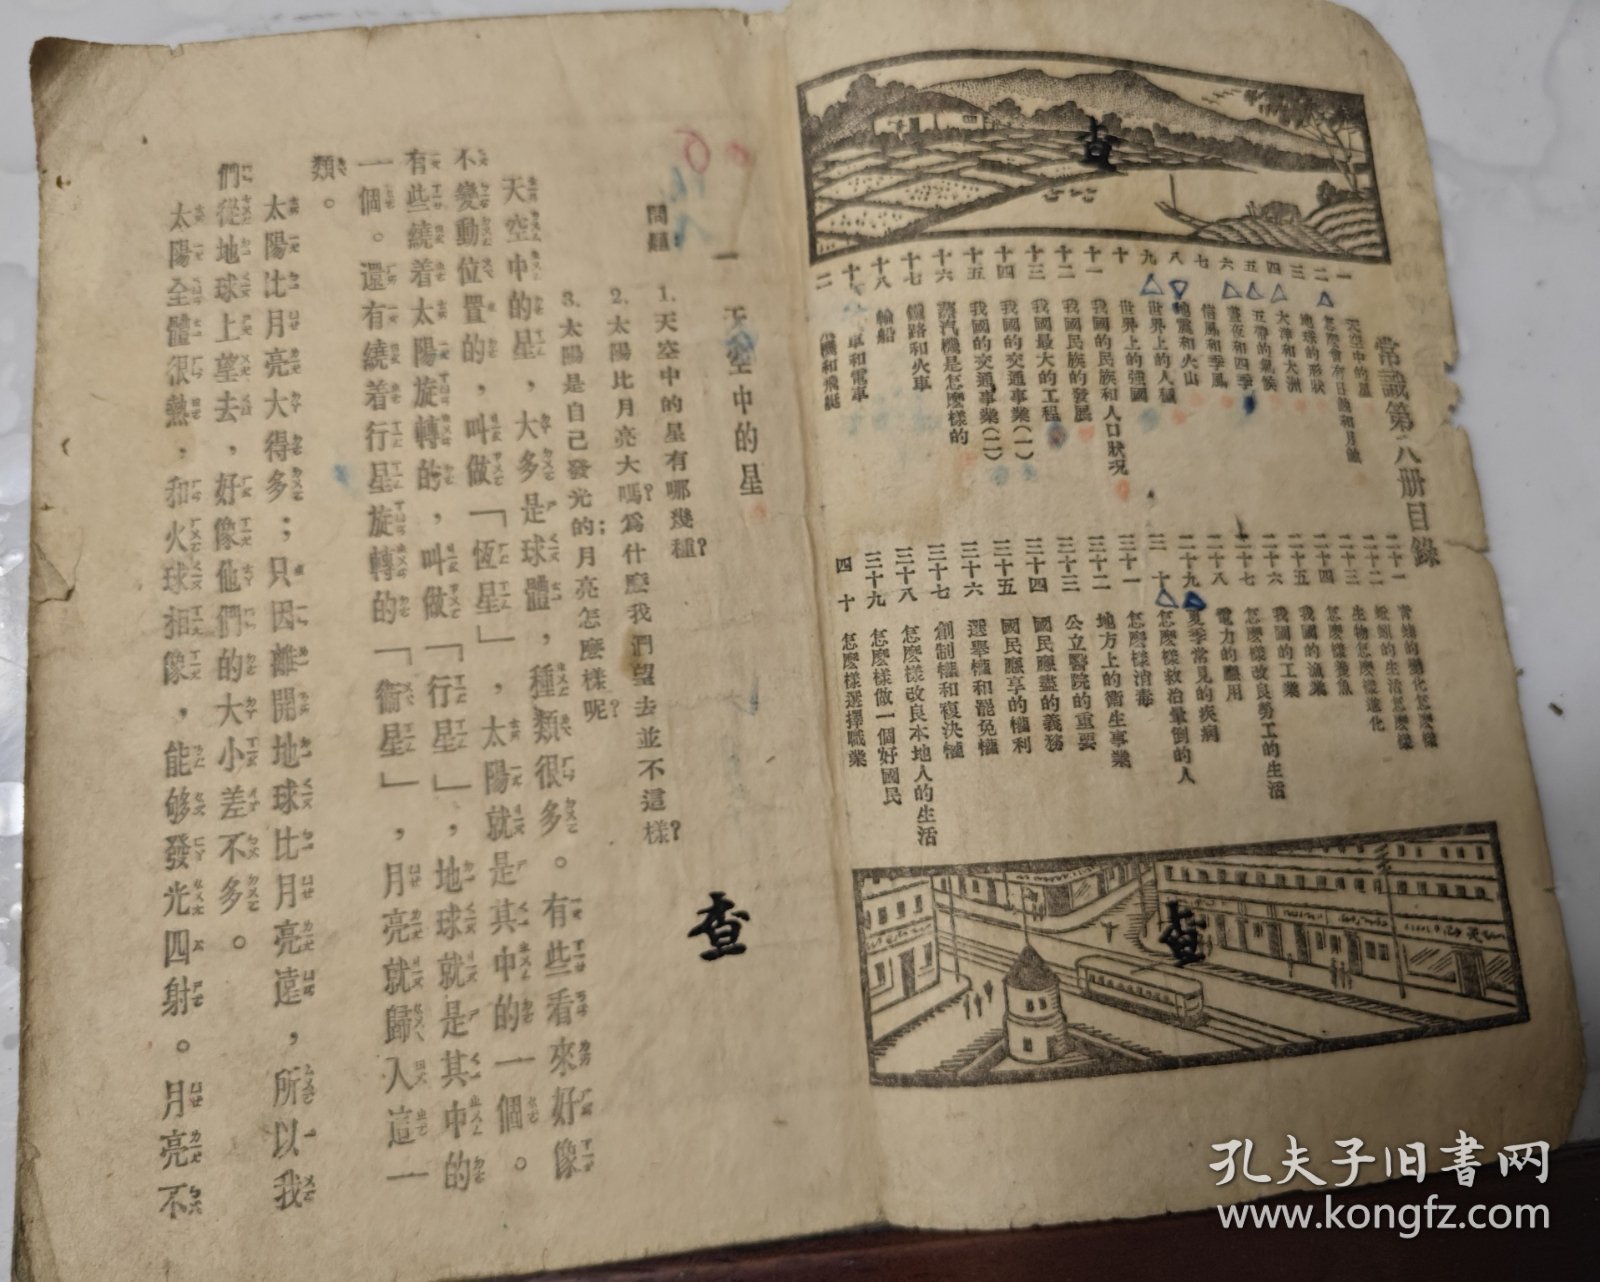 常識第八册目錄
一 天空中的星
二 怎麽會有日蝕和月蝕
三 地球的形狀
四 大洋和大洲
五 五帶的氣候
六 晝夜和四季
七 信風和季風
八 地震和火山
九 世界上的人種
十 世界上的強國
十一 我國的民族和人口狀況
十二 我國民族的發展
十三 我國最大的工程
十四 我國的交通事業(一)
十五 我國的交通事業(二)
十六 蒸汽機是怎麽樣的
十七 鐵路和火車
十八 輪船
十 車和電車
二 機和飛艇
二十一 青蛙的變化怎麽樣
二十二 的生活怎麽樣
二十三 生物怎麽樣進化
二十四 怎麽樣養魚
二十五 我國的漁業
二十六 我國的工業
二十七 怎麽樣改良勞工的生活
二十八 電力的應用
二十九 夏季常見的疾病
三十 怎麽樣救治暈倒的人
三十一 怎麽樣消毒
三十二 地方上的衛生事業
三十三 公立醫院的重要
三十四 國民應盡的義務
三十五 國民應享的權利
三十六 選舉權和罷免權
三十七 創制權和複決權
三十八 怎麽樣改良本地人的生活
三十九 怎麽樣做一個好國民
四十 怎麽樣選擇職業
查
查
一 天空中的星
問題:
1.天空中的星有哪幾種?
2.太陽比月亮大嗎?爲什麽我們望去並不這樣?
3.太陽是自己發光的;月亮怎麽樣呢?
天空中的星,大多是球體,種類很多。有些看來好像
不變動位置的,叫做「恆星」,太陽就是其中的一個。
有些繞着太陽旋轉的,叫做「行星」,地球就是其中的
一個。還有繞着行星旋轉的「衞星」,月亮就歸入這一
類。
太陽比月亮大得多;只因離開地球比月亮遠,所以我
們從地球上望去,好像他們的大小差不多。
太陽全體很熱,和火球相像,能够發光四射。月亮不
查
孔夫子旧書网
www.kongfz.com